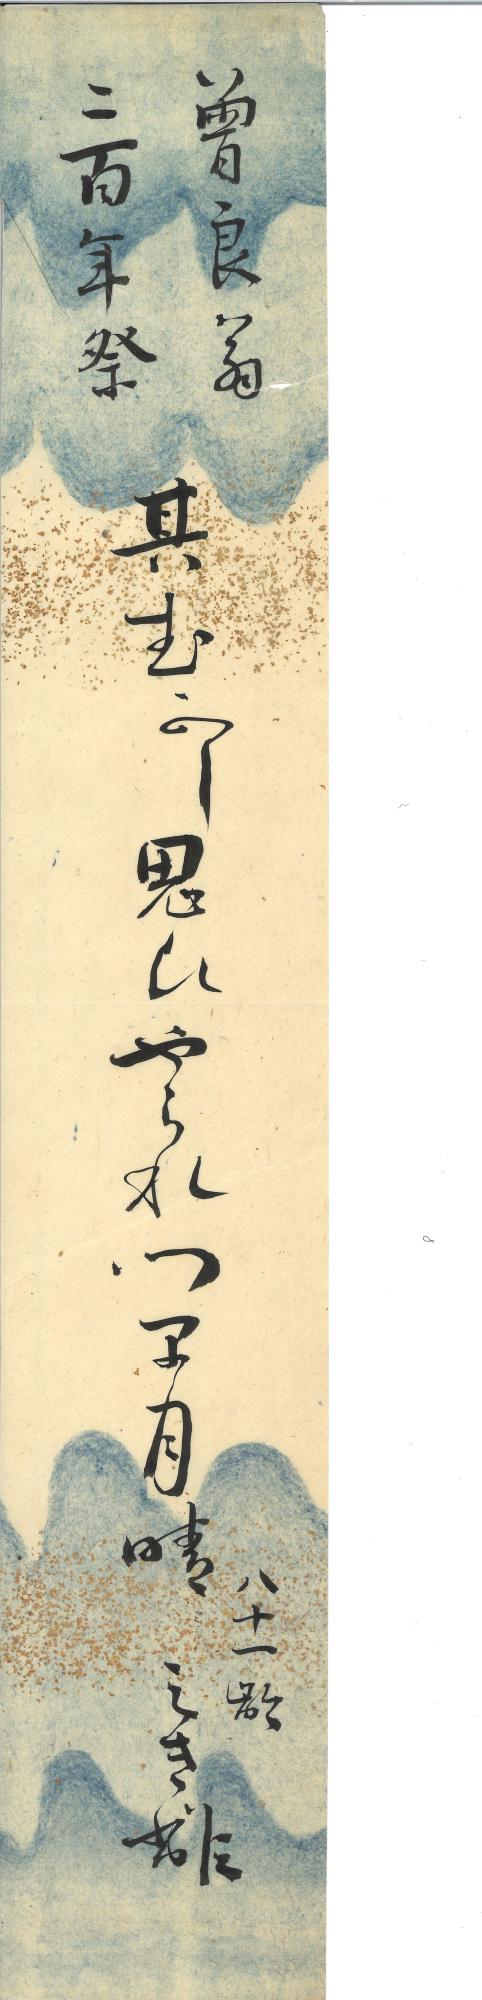 曽良翁
二百年祭
其むかし思ひやられつ早月晴
八十一齢